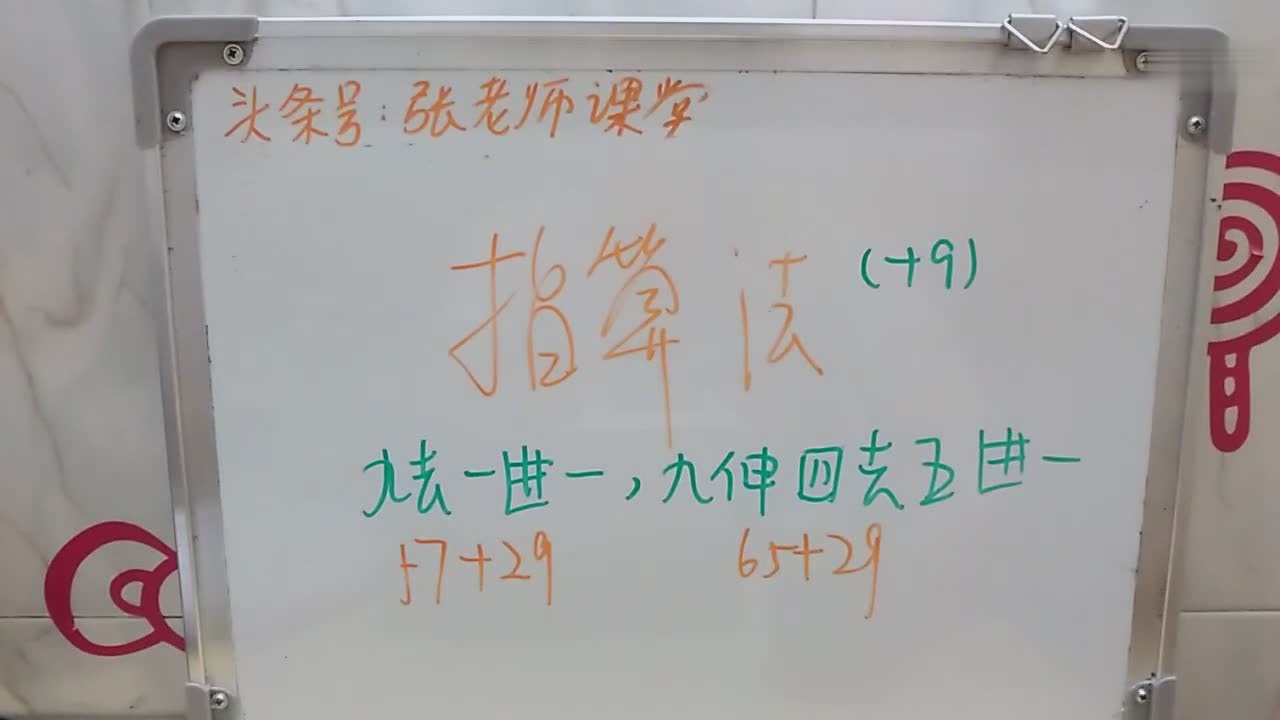 头条号:张老师课堂
指算法 (+9)
九去一进一,九伸四去五进一
57+29 65+29